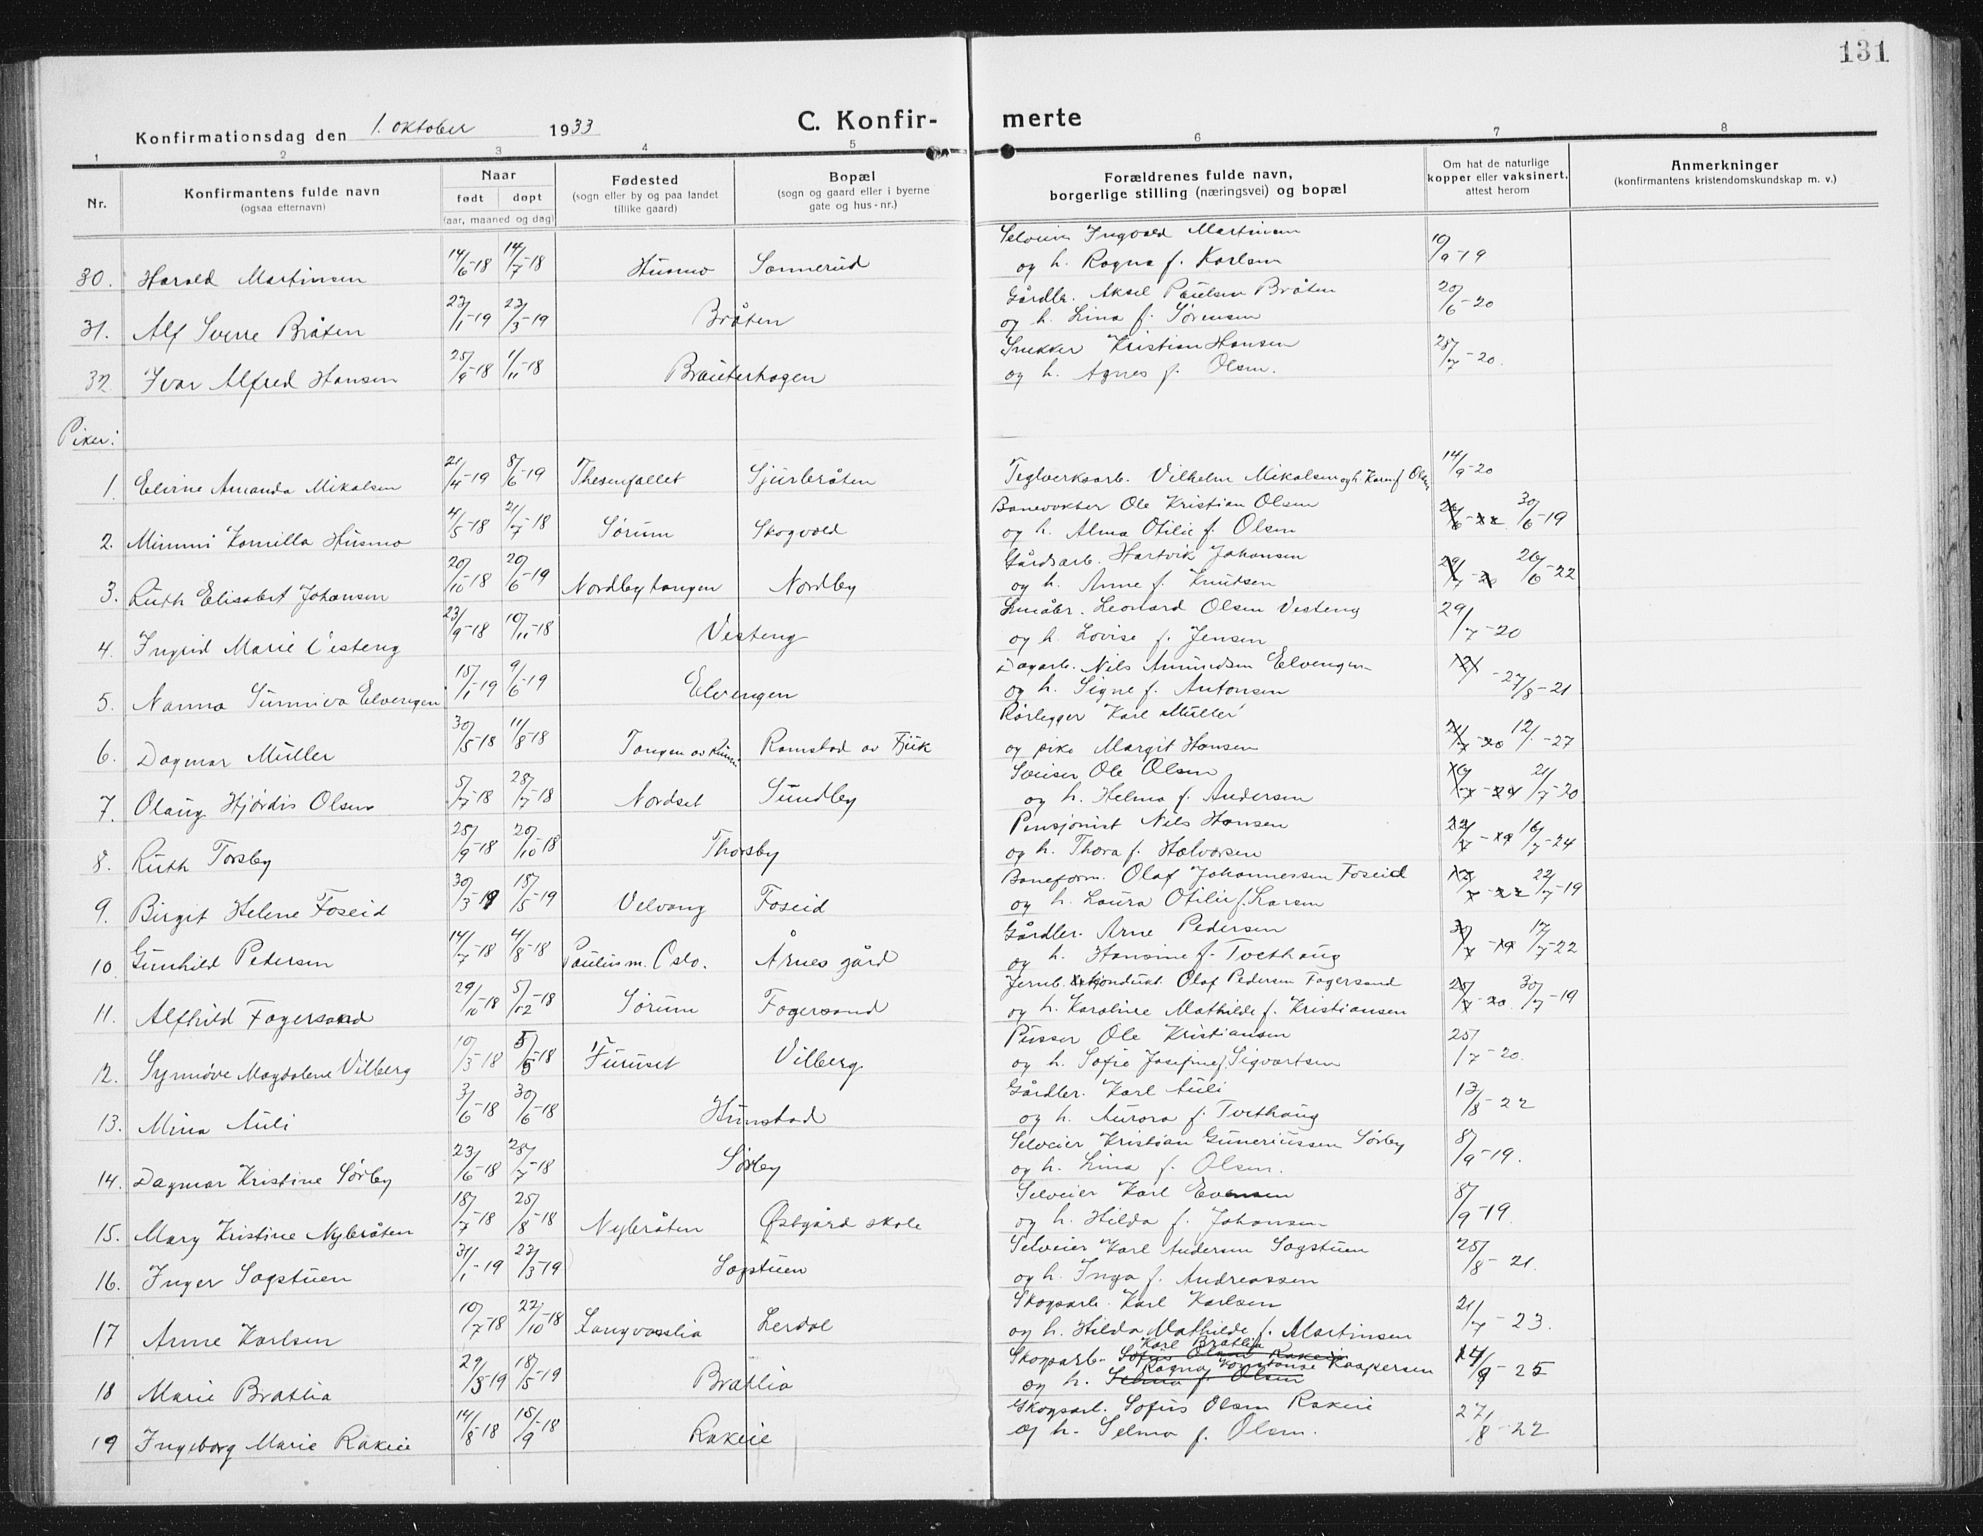 131
Konfirmationsdag den 1. oktober 1933
C. Konfirmerte
1 2 3 4 5 6 7 8
Nr.
Konfirmantens fulde navn
(ogsaa efternavn)
Naar
født døpt
(aar, maaned og dag)
Fødested
(sogn eller by og paa landet
tillike gaard)
Bopæl
(sogn og gaard eller i byerne
gate og hus-nr.)
Forældrenes fulde navn,
borgerlige stilling (næringsvei) og bopæl
Om hat de naturlige
kopper eller vaksinert,
attest herom
Anmerkninger
(konfirmantens kristendomskundskap m. v.)
Selveier Ingvald Martinsen
30. Harald Martinsen 14/6-18 14/7-18 Husmo Sannerud og h. Ragna f. Karlsen 19/9-19
Gårdbr. Aksel Paulsen Bråten
31. Alf Sverre Bråten 23/1-19 23/3-19 Bråten og h. Lina f. Sørensen 20/6-20
Snekker Kristian Hansen
32 Ivar Alfred Hansen 25/9-18 1/11-18 Brauterhagen og h. Agnes f. Olsen. 28/7-20.
Piker:
1. Elirne Amanda Mikalsen 21/4-19 8/6-19 Thesenfallet Sjurbråten Teglverksarb. Vilhelm Mikalsen og h. Karen f. Olsen 14/9-20
Banevokter Ole Kristian Olsen
2. Mimmi Kamilla Husmo 4/5-18 21/7-18 Sørum Skogvold og h. Alma Otilie f. Olsen 30/6-19
Gårdsarb. Hartvik Johansen
3. Ruth Elisabet Johansen 20/10-18 29/6-19 Nordbytangen Nordby og h. Anne f. Knutsen 26/6-22
Småbr. Leonard Olsen Vesteng
4. Ingrid Marie Vesteng 23/9-18 10/11-18 Vesteng og h. Lovise f. Jensen 29/7-20
Dagarb. Nils Amundsen Elvengen
5. Nanna Sunniva Elvengen 15/1-19 9/6-19 Elvengen og h. Signe f. Antonsen 27/8-21
Rørlegger Karl Müller
6. Dagmar Müller 30/5-18 11/8-18 Tangen av Ramstad av Fjuk og pike Margit Hansen 12/-27
Sveiser Ole Olsen
7. Olaug Hjørdis Olsen 5/7-18 28/7-18 Nordset Sundby og h. Helma f. Andersen 21/7-20
Pensjonist Nils Hansen
8. Ruth Torsby 25/9-18 20/10-18 Thorsby og h. Thora f. Halvorsen 16/7-24
Baneform. Olaf Johannessen Foseid
9. Birgit Helene Foseid 30/3-19 18/5-19 Velvang Foseid og h. Laura Otilie f. Larsen 22/7-19
Gårdbr. Arne Pedersen
10. Gunhild Pedersen 14/7-18 4/8-18 Paulus m. Oslo. Årnes gård og h. Hansine f. Tvethaug 17/7-22
Jernb. kondukt. Olaf Pedersen Fagersand
11. Alfhild Fagersand 29/10-18 5/12-18 Sørum Fagersand og h. Karoline Mathilde f. Kristiansen 30/7-19
Pusser Ole Kristiansen
12. Synnøve Magdalene Vilberg 10/3-18 5/5-18 Furuset Vilberg og h. Sofie Josefine f. Sigvartsen 25/7-20.
Gårdbr. Karl Auli
13. Mina Auli 3/6-18 30/6-18 Hunstad og h. Aurora f. Tvethaug 13/8-22
Selveier Kristian Guneriussen Sørby
14. Dagmar Kristine Sørby 23/6-18 28/7-18 Sørby og h. Lina f. Olsen. 8/9-19.
Selveier Karl Evensen
15. Mary Kristine Nybråten 18/7-18 25/8-18 Nybråten Østgård skole og h. Hilda f. Johansen 8/9-19.
Selveier Karl Andersen Sagstuen
16. Inger Sagstuen 31/1-19 23/3-19 Sagstuen og h. Inga f. Andreassen 25/8-21.
Skogsarb. Karl Karlsen
17 Anne Karlsen 10/7-18 22/10-18 Langvasslia Lerdal og h. Hilda Mathilde f. Martinsen 21/7-23.
Karl Bratlia
Skogsarb. Sofus Olsen Rakeie
Ragna Konstanse Kaspersen
18 Marie Bratlia 29/3-19 18/5-19 Bratlia og h. Selma f. Olsen 14/9-25
Skogsarb. Sofus Olsen Rakeie
19 Ingeborg Marie Rakeie 14/8-18 15/9-18 Rakeie og h. Selma f. Olsen. 27/8-22